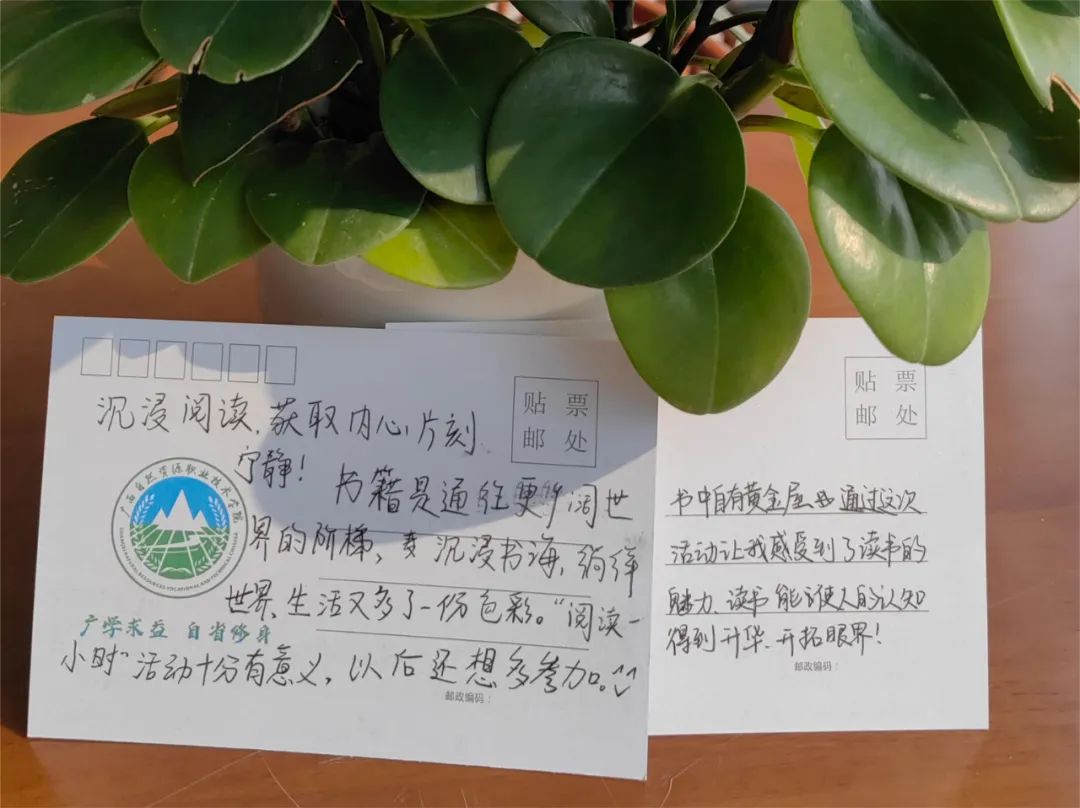 沉浸阅读,获取内心片刻
宁静!
贴 票
邮 处
书籍是通往更 阔世
界的阶梯,沉浸书海,
世界,生活又多了一份色彩。“阅读一
小时”活动十分有意义,以后还想多参加。^_^
广西自然资源职业技术学院
GUANGXI NATURAL RESOURCES VOCATIONAL AND TECHNICAL COLLEGE
广学求益 自省修身
邮政编码:
贴 票
邮 处
书中自有黄金屋 通过这次
活动让我感受到了读书的
魅力.读书能使人的认知
得到升华.开拓眼界!
邮政编码: